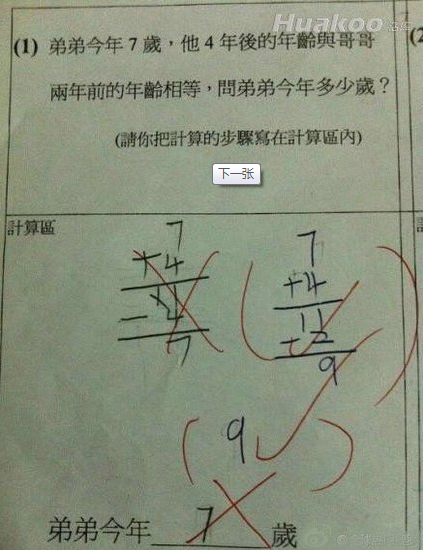 Huakoo
(1) 弟弟今年 7 歲，他 4 年後的年齡與哥哥
兩年前的年齡相等，問弟弟今年多少歲？
(請你把計算的步驟寫在計算區內)
下一张
(2
計算區
7
+4
11
-4
7
7
+4
11
+2
9
(9)
弟弟今年 7 歲